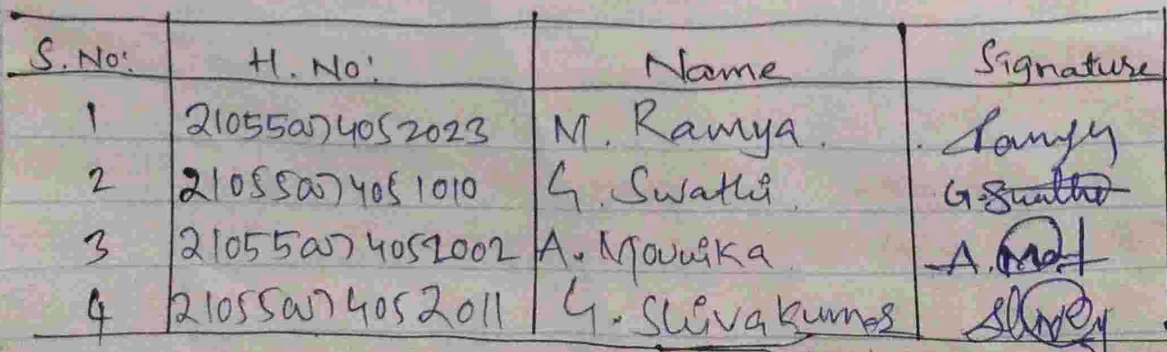 S. No: H. No: Name Signature
1 210550074052023 M. Ramya.
2 210550074051010 G. Swathi G. Swathi
3 210550074052002 A. Mounika A.
4 210550074052011 G. Shivakumar